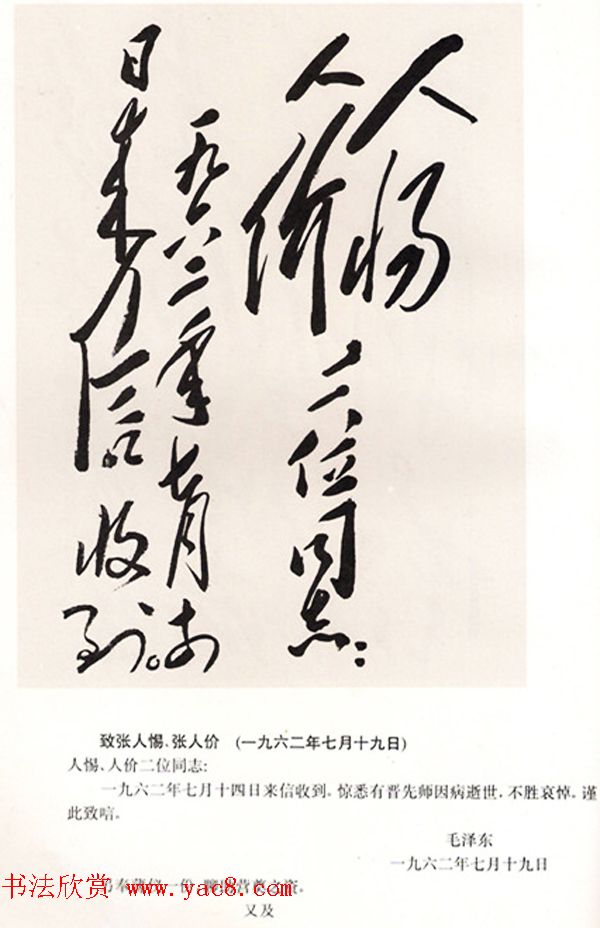 人惕
人价二位同志：
一九六二年七月十四
日来信收到。
致张人惕、张人价 (一九六二年七月十九日)
人惕、人价二位同志：
一九六二年七月十四日来信收到。惊悉有晋先师因病逝世，不胜哀悼。谨
此致唁。
毛泽东
一九六二年七月十九日
奉 一份 营葬之资。
书法欣赏 www.yac8.com
又及